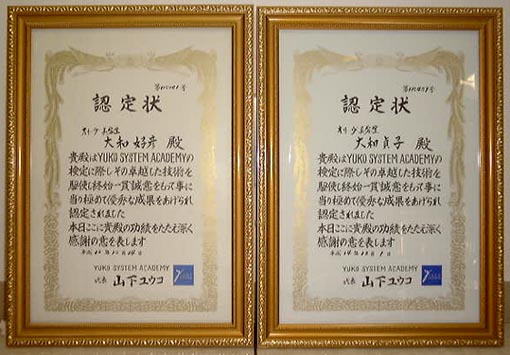 認定状
大和 好彦 殿
貴殿はYUKO SYSTEM ACADEMYの
検定に際しその卓越した技術を
駆使し終始一貫誠意をもって事に
当り極めて優秀な成果をあげられ
認定されました
本日ここに貴殿の功績をたたえ深く
感謝の意を表します
YUKO SYSTEM ACADEMY
氏表 山下ユウコ
認定状
大和 貞子 殿
貴殿はYUKO SYSTEM ACADEMYの
検定に際しその卓越した技術を
駆使し終始一貫誠意をもって事に
当り極めて優秀な成果をあげられ
認定されました
本日ここに貴殿の功績をたたえ深く
感謝の意を表します
YUKO SYSTEM ACADEMY
山下ユウコ